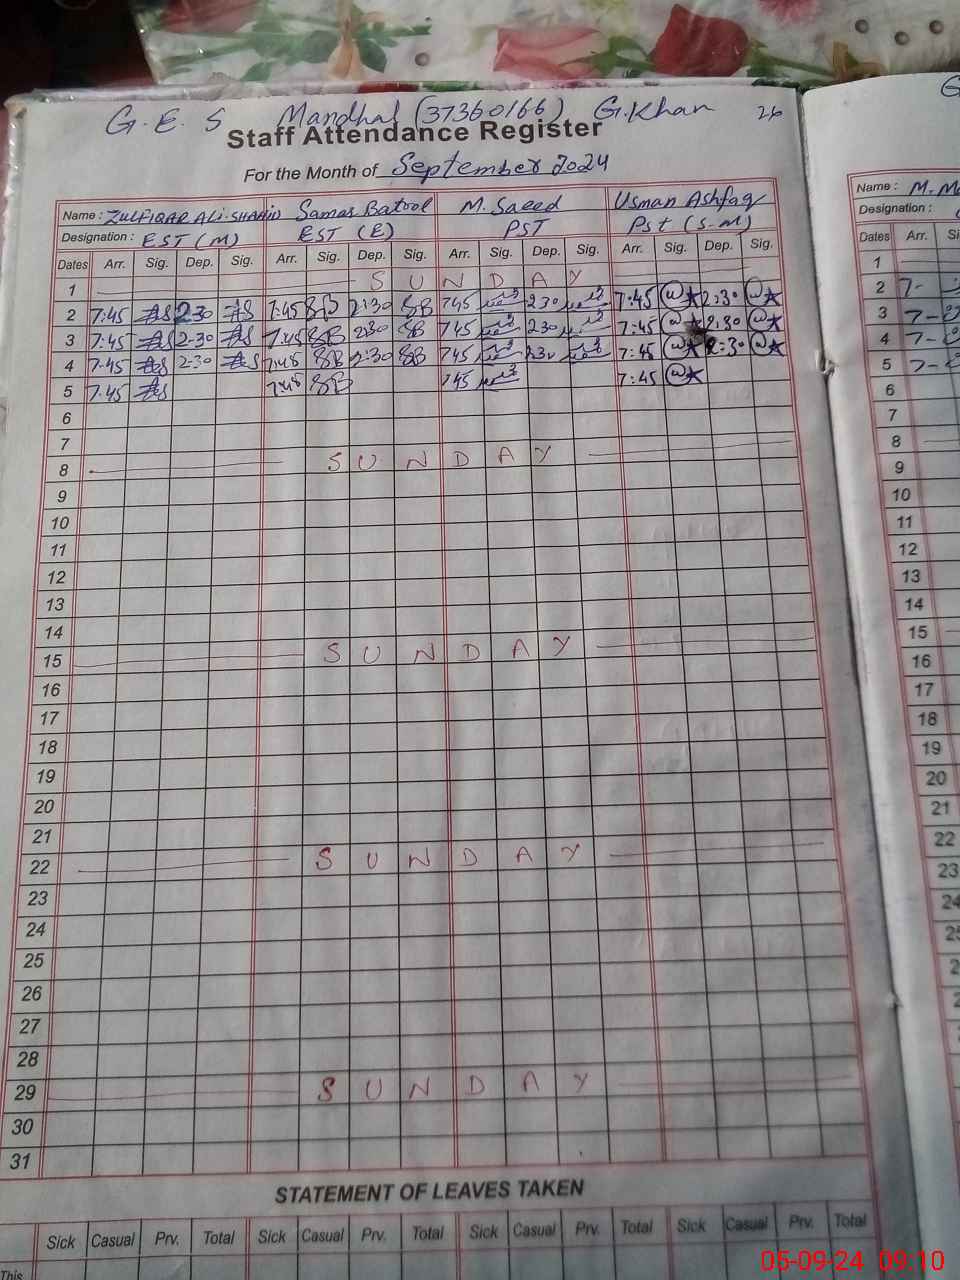 G.E.S Mandhal (37360166) G.Khan 26
Staff Attendance Register
For the Month of September 2024
Name : ZULFIQAR ALI SHAHID Samar Batool M. Saeed Usman Ashfaq
Designation : EST (M) EST (E) PST Pst (S-M)
Dates Arr. Sig. Dep. Sig. Arr. Sig. Dep. Sig. Arr. Sig. Dep. Sig. Arr. Sig. Dep. Sig.
1 SUNDAY
2 7:45 2:30 7:45 SB 2:30 SB 745 230 7:45 2:30
3 7:45 2-30 7:45 SB 2:30 SB 745 230 7:45 2:30
4 7-45 2:30 7:45 SB 2:30 SB 745 230 7:45 2:30
5 7:45 7:45 SB 745 7:45
6
7
8 SUNDAY
9
10
11
12
13
14
15 SUNDAY
16
17
18
19
20
21
22 SUNDAY
23
24
25
26
27
28
29 SUNDAY
30
31
STATEMENT OF LEAVES TAKEN
Sick Casual Prv. Total Sick Casual Prv. Total Sick Casual Prv. Total Sick Casual Prv. Total
This
G
Name : M. M
Designation :
Dates Arr. Si
1
2 7-
3 7-
4 7-
5 7-
6
7
8
9
10
11
12
13
14
15
16
17
18
19
20
21
22
23
24
25
05-09-24 09:10